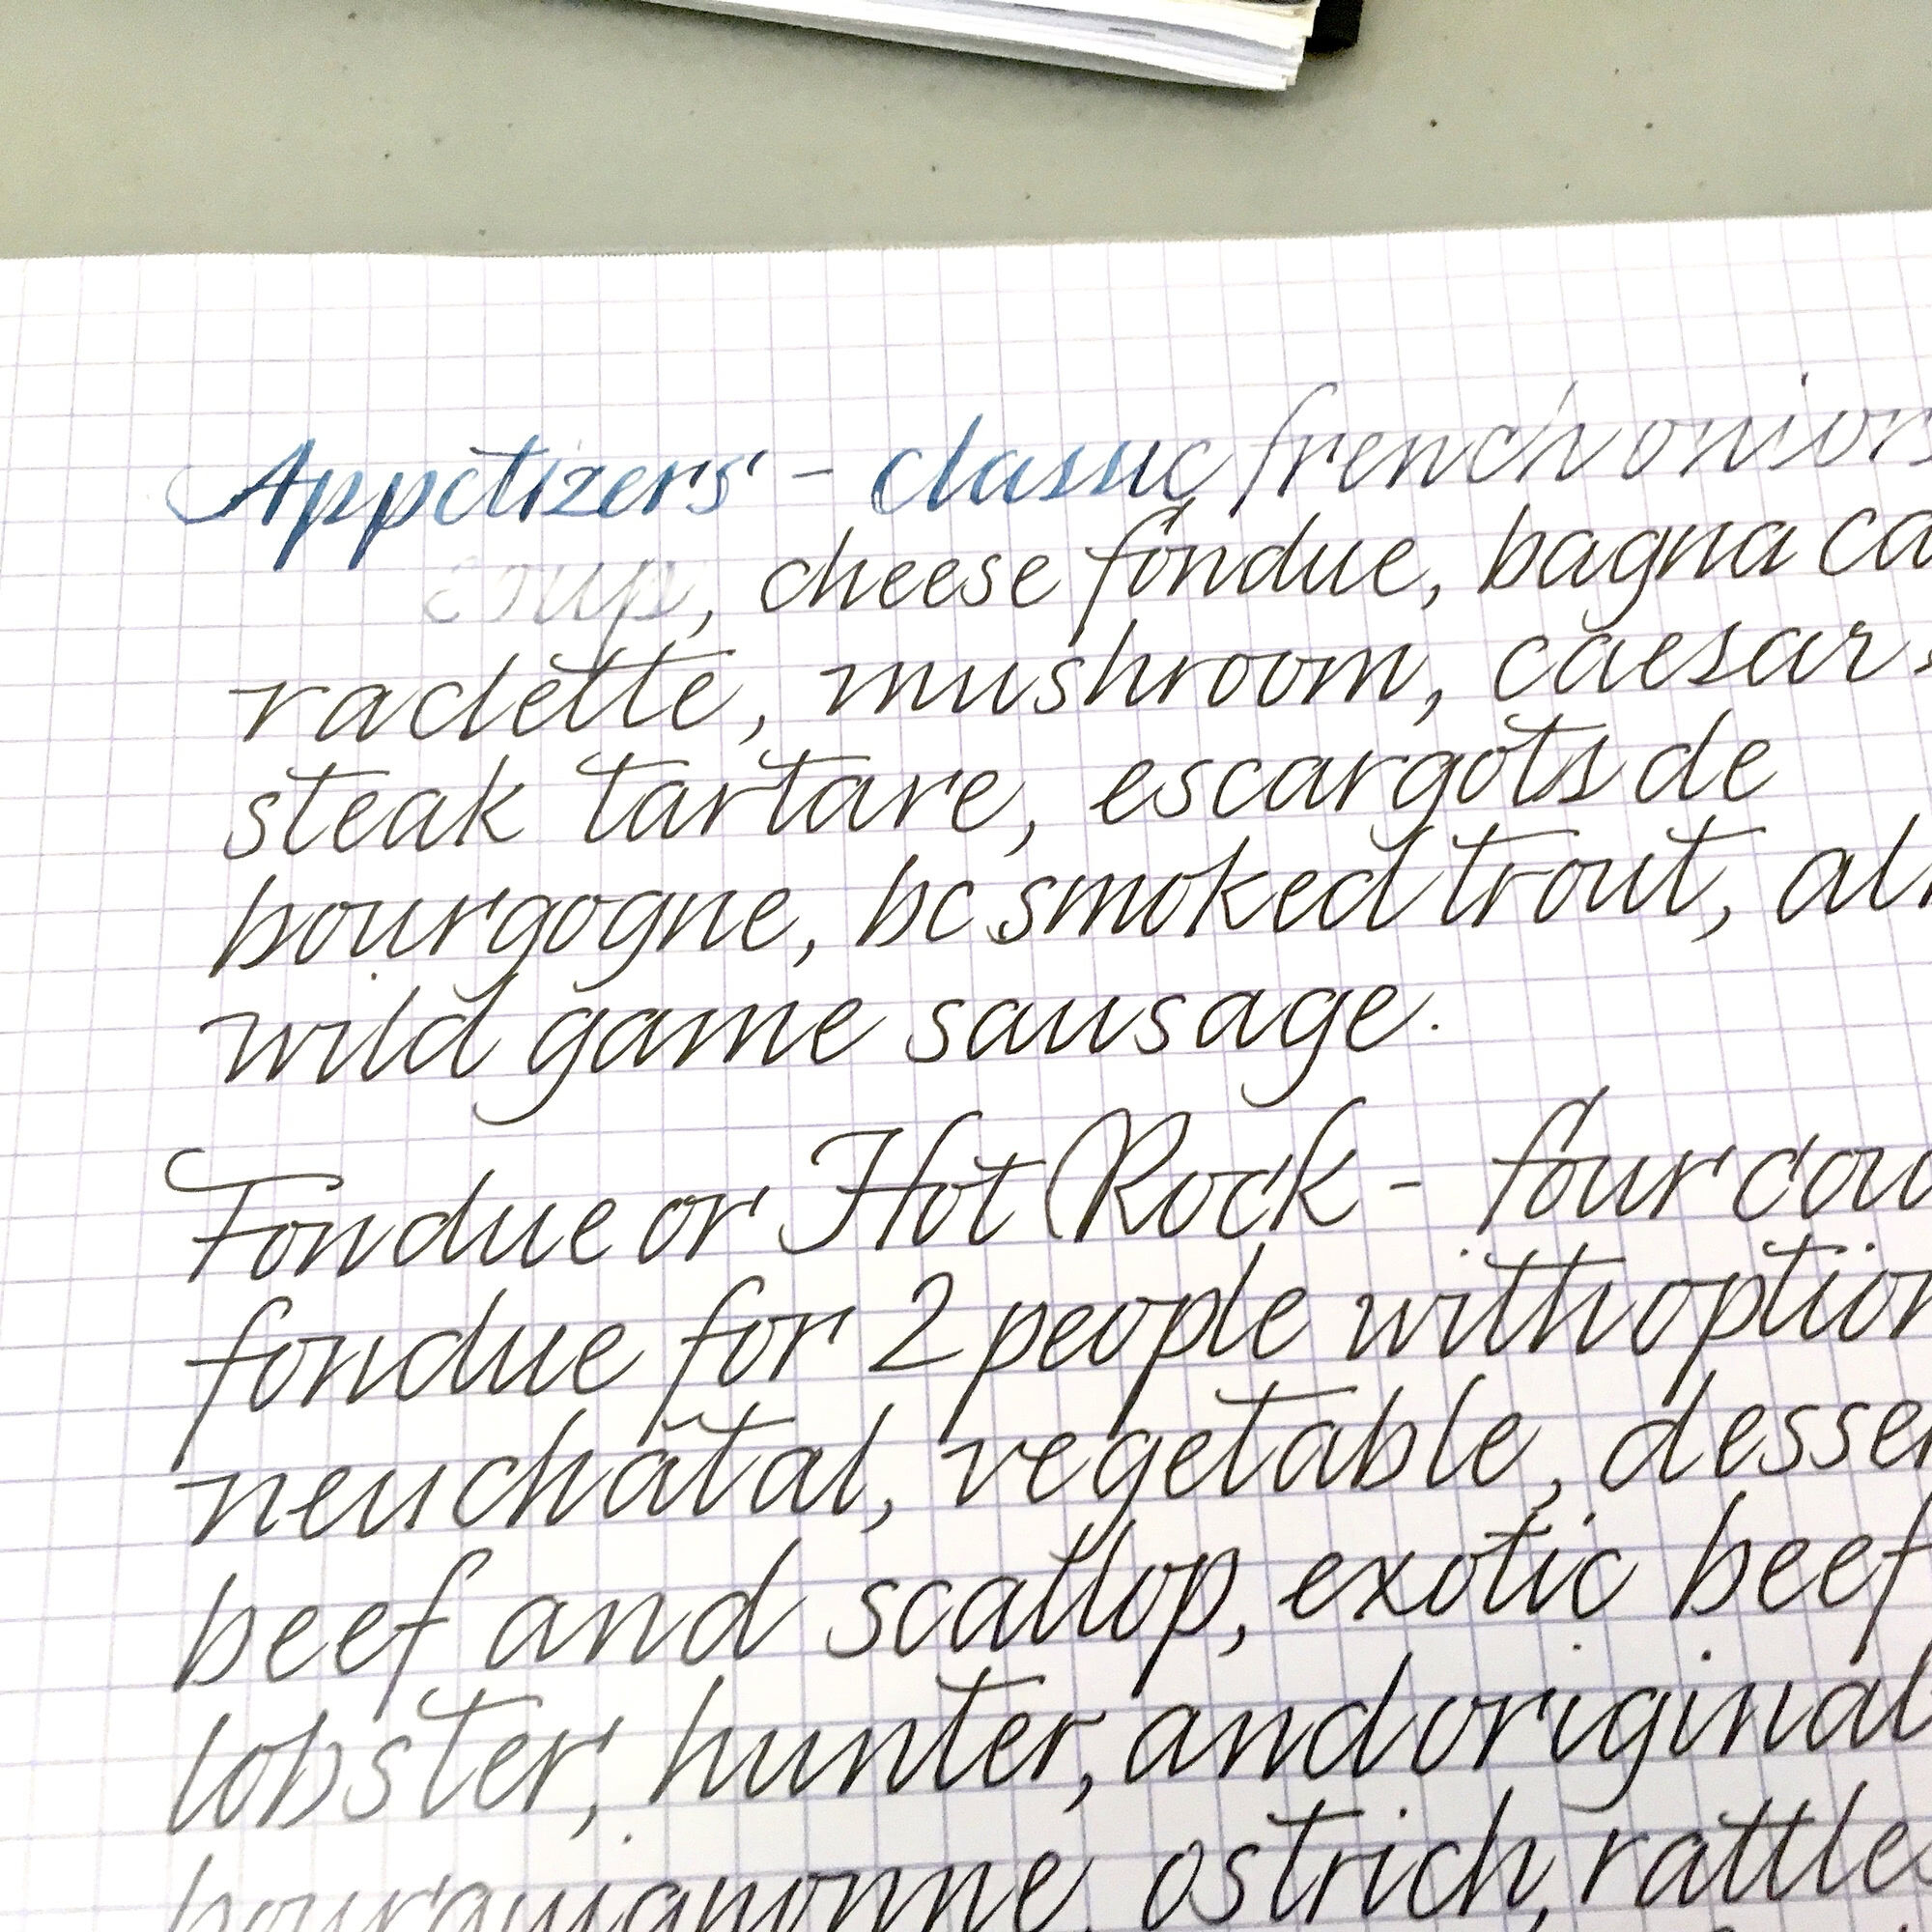 Appetizers - classic french onion
soup, cheese fondue, bagna ca
raclette, mushroom, caesar s
steak tartare, escargots de
bourgogne, bc smoked trout, al
wild game sausage.
Fondue or Hot Rock - four cou
fondue for 2 people with option
neuchâtal, vegetable, desser
beef and scallop, exotic beef
lobster, hunter, and original
bourguignonne, ostrich, rattles